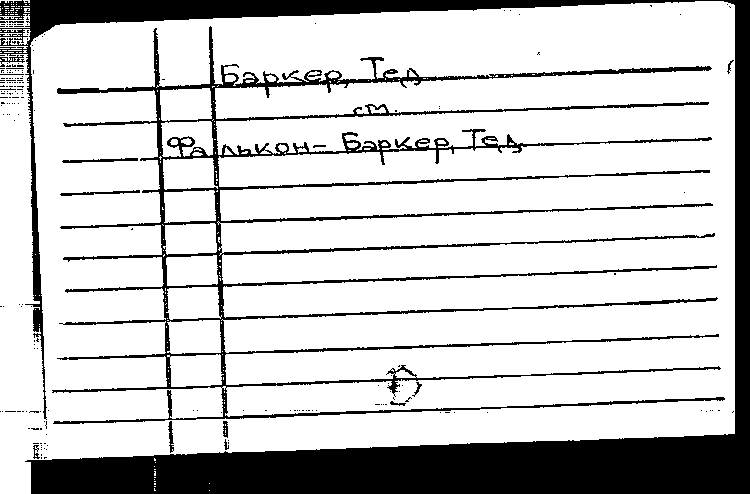 Баркер, Тед
см.
Фалькон- Баркер, Тед